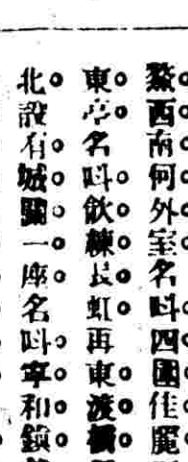 西南何外室名叫四圍佳麗
東亭名叫飲練長虹再東渡橋
北設有城關一座名叫寧和鎮